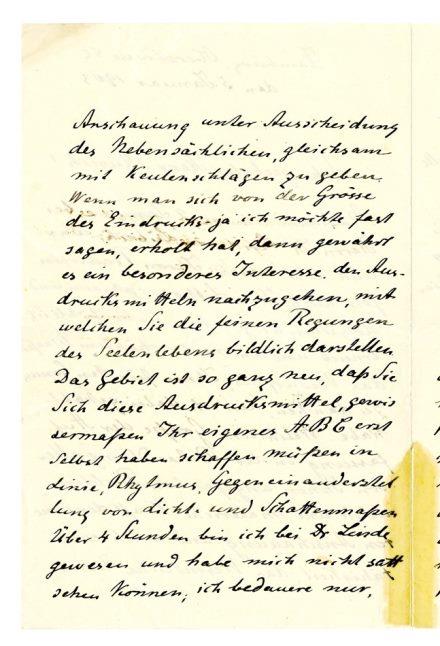 Anschauung unter Ausscheidung
des Nebensächlichen, gleichsam
mit Keulenschlägen zu geben.
Wenn man sich von der Grösse
des Eindrucks - ja ich möchte fast
sagen, erholt hat, dann gewährt
es ein besonderes Interesse, den Aus-
drucksmitteln nachzugehen, mit
welchen Sie die feinen Regungen
des Seelenlebens bildlich darstellen
Das Gebiet ist so ganz neu, daß Sie
Sich diese Ausdrucksmittel, gewis
sermaßen Ihr eigenes ABC erst
Selbst haben schaffen müßen in
Linie, Rhytmus, Gegeneinanderstel
lung von Licht- und Schattenmaßen
Über 4 Stunden bin ich bei Dr Linde
gewesen und habe mich nicht satt
sehen können, ich bedauere nur,